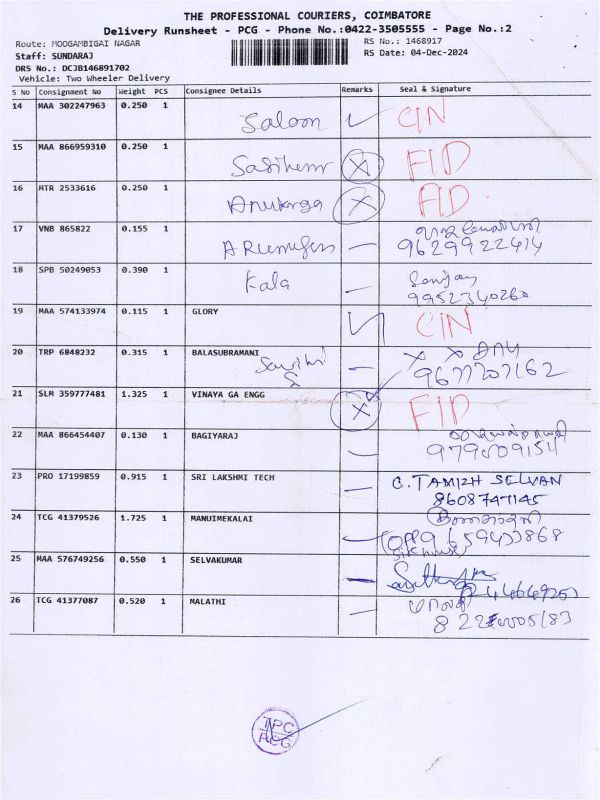 THE PROFESSIONAL COURIERS, COIMBATORE
Delivery Runsheet - PCG - Phone No.:0422-3505555 - Page No.:2
Route: MOOGAMBIGAI NAGAR
RS No.: 1468917
Staff: SUNDARAJ
RS Date: 04-Dec-2024
DRS No.: DCJB146891702
Vehicle: Two Wheeler Delivery
S No Consignment No Weight PCS Consignee Details Remarks Seal & Signature
14 MAA 302247963 0.250 1 Saloon CIN
15 MAA 866959310 0.250 1 X FID
16 MTR 2533616 0.250 1 X FID
17 VNB 865822 0.155 1
9629922414
18 SPB 50249053 0.390 1 Kala Sanjay
9952340260
19 MAA 574133974 0.115 1 GLORY CIN
20 TRP 6848232 0.315 1 BALASUBRAMANI
9677207162
21 SLM 359777481 1.325 1 VINAYA GA ENGG X FID
22 MAA 866454407 0.130 1 BAGIYARAJ
23 PRO 17199859 0.915 1 SRI LAKSHMI TECH C. TAMIZH SELVAN
8608747145
24 TCG 41379526 1.725 1 MANUIMEKALAI
25 MAA 576749256 0.550 1 SELVAKUMAR
26 TCG 41377087 0.520 1 MALATHI மாலதி
TPC
PCG